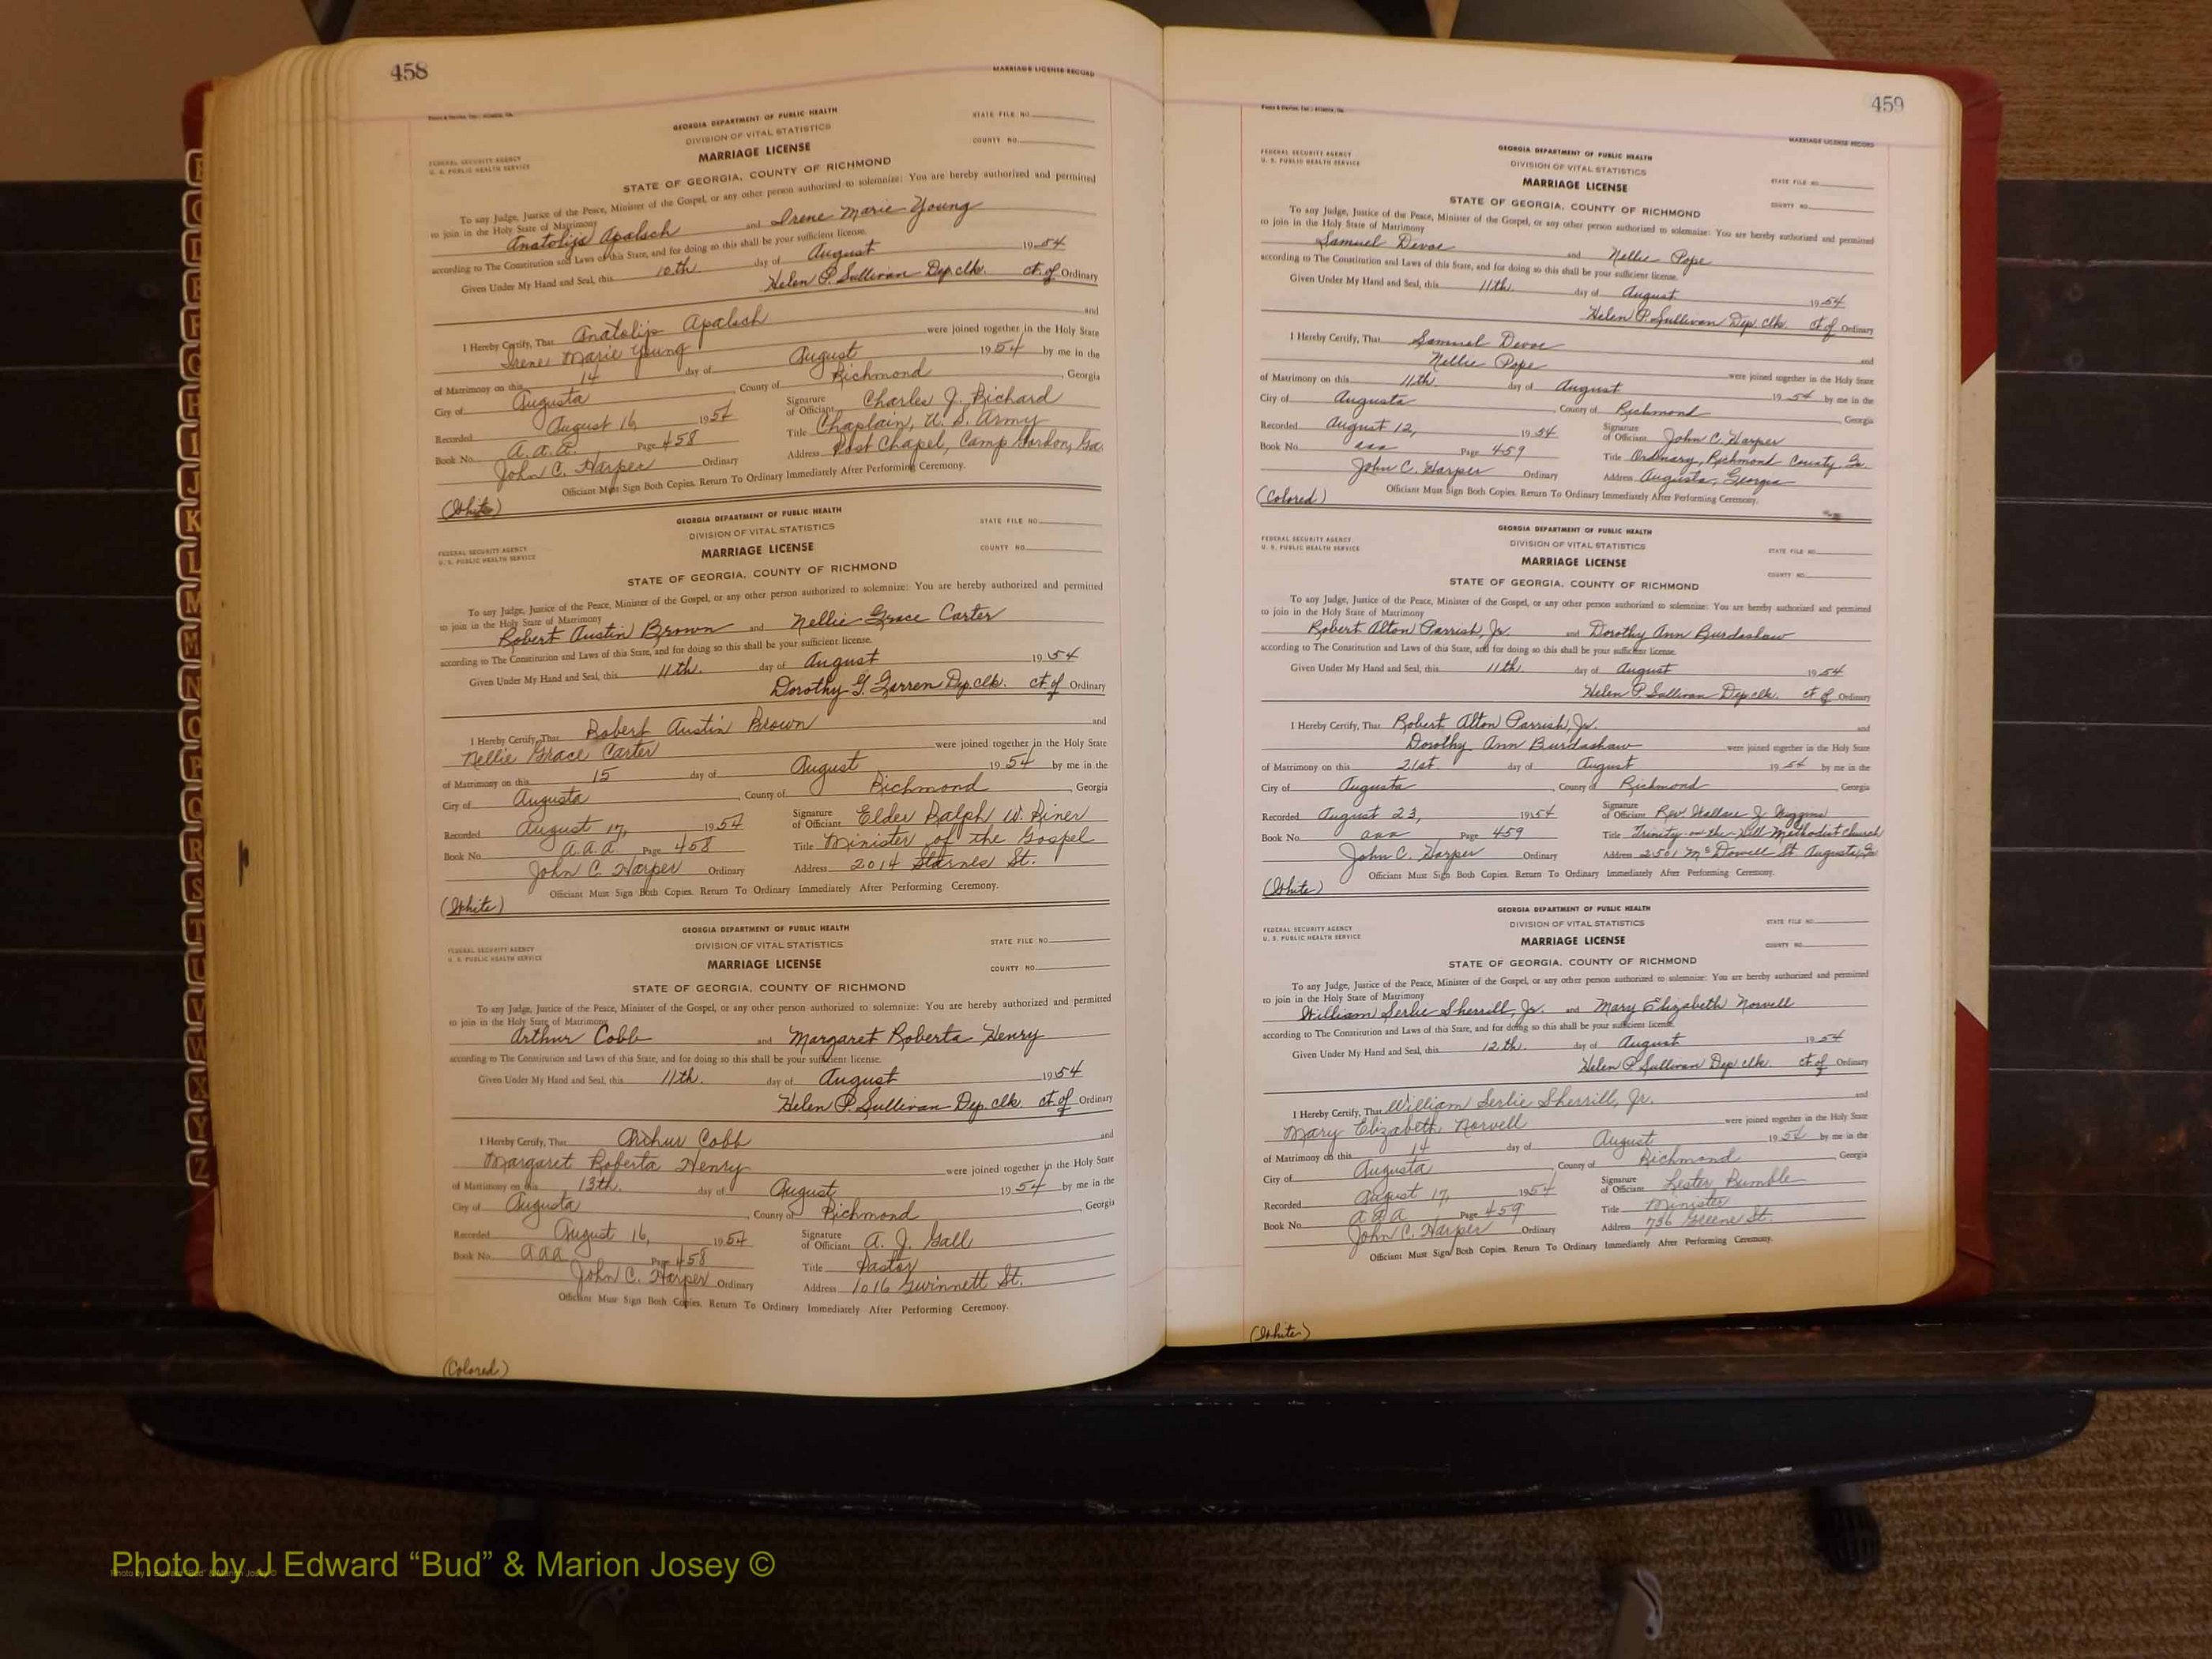 458
MARRIAGE LICENSE RECORD
GEORGIA DEPARTMENT OF PUBLIC HEALTH
DIVISION OF VITAL STATISTICS
STATE FILE NO.
COUNTY NO.
FEDERAL SECURITY AGENCY
U. S. PUBLIC HEALTH SERVICE
MARRIAGE LICENSE
STATE OF GEORGIA, COUNTY OF RICHMOND
To any Judge, Justice of the Peace, Minister of the Gospel, or any other person authorized to solemnize: You are hereby authorized and permitted
to join in the Holy State of Matrimony
Anatolijs Apalsch and Irene Marie Young
according to The Constitution and Laws of this State, and for doing so this shall be your sufficient license.
Given Under My Hand and Seal, this 10th day of August 1954
Helen P. Sullivan Dep clk. ct. of Ordinary
I Hereby Certify, That Anatolijs Apalsch and
Irene Marie Young were joined together in the Holy State
of Matrimony on this 14 day of August 1954 by me in the
City of Augusta, County of Richmond, Georgia
Recorded August 16, 1954 Signature of Officiant Charles J. Richard
Book No. A.A.A. Page 458 Title Chaplain, U. S. Army
John C. Harper Ordinary Address Post Chapel, Camp Gordon, Ga.
Officiant Must Sign Both Copies. Return To Ordinary Immediately After Performing Ceremony.
(White)
GEORGIA DEPARTMENT OF PUBLIC HEALTH
DIVISION OF VITAL STATISTICS
STATE FILE NO.
COUNTY NO.
FEDERAL SECURITY AGENCY
U. S. PUBLIC HEALTH SERVICE
MARRIAGE LICENSE
STATE OF GEORGIA, COUNTY OF RICHMOND
To any Judge, Justice of the Peace, Minister of the Gospel, or any other person authorized to solemnize: You are hereby authorized and permitted
to join in the Holy State of Matrimony
Robert Austin Brown and Nellie Grace Carter
according to The Constitution and Laws of this State, and for doing so this shall be your sufficient license.
Given Under My Hand and Seal, this 11th. day of August 1954
Dorothy G. Dep clk. ct of Ordinary
I Hereby Certify, That Robert Austin Brown and
Nellie Grace Carter were joined together in the Holy State
of Matrimony on this 15 day of August 1954 by me in the
City of Augusta, County of Richmond, Georgia
Recorded August 17, 1954 Signature of Officiant Elder Ralph W. Riner
Book No. A.A.A. Page 458 Title Minister of the Gospel
John C. Harper Ordinary Address 2014 Starnes St.
Officiant Must Sign Both Copies. Return To Ordinary Immediately After Performing Ceremony.
(White)
GEORGIA DEPARTMENT OF PUBLIC HEALTH
DIVISION OF VITAL STATISTICS
STATE FILE NO.
COUNTY NO.
FEDERAL SECURITY AGENCY
U. S. PUBLIC HEALTH SERVICE
MARRIAGE LICENSE
STATE OF GEORGIA, COUNTY OF RICHMOND
To any Judge, Justice of the Peace, Minister of the Gospel, or any other person authorized to solemnize: You are hereby authorized and permitted
to join in the Holy State of Matrimony
Arthur Cobb and Margaret Roberta Henry
according to The Constitution and Laws of this State, and for doing so this shall be your sufficient license.
Given Under My Hand and Seal, this 11th. day of August 1954
Helen P. Sullivan Dep. clk ct. of Ordinary
I Hereby Certify, That Arthur Cobb and
Margaret Roberta Henry were joined together in the Holy State
of Matrimony on this 13th. day of August 1954 by me in the
City of Augusta, County of Richmond, Georgia
Recorded August 16, 1954 Signature of Officiant A. J. Gall
Book No. AAA Page 458 Title Pastor
John C. Harper Ordinary Address 1016 Gwinnett St.
Officiant Must Sign Both Copies. Return To Ordinary Immediately After Performing Ceremony.
(Colored)
459
MARRIAGE LICENSE RECORD
GEORGIA DEPARTMENT OF PUBLIC HEALTH
DIVISION OF VITAL STATISTICS
STATE FILE NO.
COUNTY NO.
FEDERAL SECURITY AGENCY
U. S. PUBLIC HEALTH SERVICE
MARRIAGE LICENSE
STATE OF GEORGIA, COUNTY OF RICHMOND
To any Judge, Justice of the Peace, Minister of the Gospel, or any other person authorized to solemnize: You are hereby authorized and permitted
to join in the Holy State of Matrimony
Samuel Devoe and Nellie Pope
according to The Constitution and Laws of this State, and for doing so this shall be your sufficient license.
Given Under My Hand and Seal, this 11th. day of August 1954
Helen P. Sullivan Dep. clk. ct of Ordinary
I Hereby Certify, That Samuel Devoe and
Nellie Pope were joined together in the Holy State
of Matrimony on this 11th. day of August 1954 by me in the
City of Augusta, County of Richmond Georgia
Recorded August 12, 1954 Signature of Officiant John C. Harper
Book No. aaa Page 459 Title Ordinary, Richmond County, Ga.
John C. Harper Ordinary Address Augusta, Georgia
Officiant Must Sign Both Copies. Return To Ordinary Immediately After Performing Ceremony.
(Colored)
GEORGIA DEPARTMENT OF PUBLIC HEALTH
DIVISION OF VITAL STATISTICS
STATE FILE NO.
COUNTY NO.
FEDERAL SECURITY AGENCY
U. S. PUBLIC HEALTH SERVICE
MARRIAGE LICENSE
STATE OF GEORGIA, COUNTY OF RICHMOND
To any Judge, Justice of the Peace, Minister of the Gospel, or any other person authorized to solemnize: You are hereby authorized and permitted
to join in the Holy State of Matrimony
Robert Alton Parrish, Jr. and Dorothy Ann Burdashaw
according to The Constitution and Laws of this State, and for doing so this shall be your sufficient license.
Given Under My Hand and Seal, this 11th. day of August 1954
Helen P. Sullivan Dep clk. ct of Ordinary
I Hereby Certify, That Robert Alton Parrish, Jr. and
Dorothy Ann Burdashaw were joined together in the Holy State
of Matrimony on this 21st. day of August 1954 by me in the
City of Augusta, County of Richmond, Georgia
Recorded August 23, 1954 Signature of Officiant Rev Wallace J. Wiggins
Book No. aaa Page 459 Title Trinity-on-the-Hill Methodist Church
John C. Harper Ordinary Address 2501 McDowell St. Augusta, Ga
Officiant Must Sign Both Copies. Return To Ordinary Immediately After Performing Ceremony.
(White)
GEORGIA DEPARTMENT OF PUBLIC HEALTH
DIVISION OF VITAL STATISTICS
STATE FILE NO.
COUNTY NO.
FEDERAL SECURITY AGENCY
U. S. PUBLIC HEALTH SERVICE
MARRIAGE LICENSE
STATE OF GEORGIA, COUNTY OF RICHMOND
To any Judge, Justice of the Peace, Minister of the Gospel, or any other person authorized to solemnize: You are hereby authorized and permitted
to join in the Holy State of Matrimony
William Serlie Sherrill, Jr. and Mary Elizabeth Norvell
according to The Constitution and Laws of this State, and for doing so this shall be your sufficient license.
Given Under My Hand and Seal, this 12th. day of August 1954
Helen P Sullivan Dep clk. ct of Ordinary
I Hereby Certify, That William Serlie Sherrill, Jr. and
Mary Elizabeth Norvell were joined together in the Holy State
of Matrimony on this 14 day of August 1954 by me in the
City of Augusta, County of Richmond, Georgia
Recorded August 17, 1954 Signature of Officiant Lester Bumble
Book No. AAA Page 459 Title Minister
John C. Harper Ordinary Address 736 Greene St.
Officiant Must Sign Both Copies. Return To Ordinary Immediately After Performing Ceremony.
(White)
Photo by J Edward “Bud” & Marion Josey ©